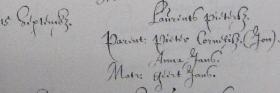 15 Septembz. Laurents pieterlz.
Parent: Pieter Cornelisz. (Jon).
Anna Jans.
Matr: Geert Jans.